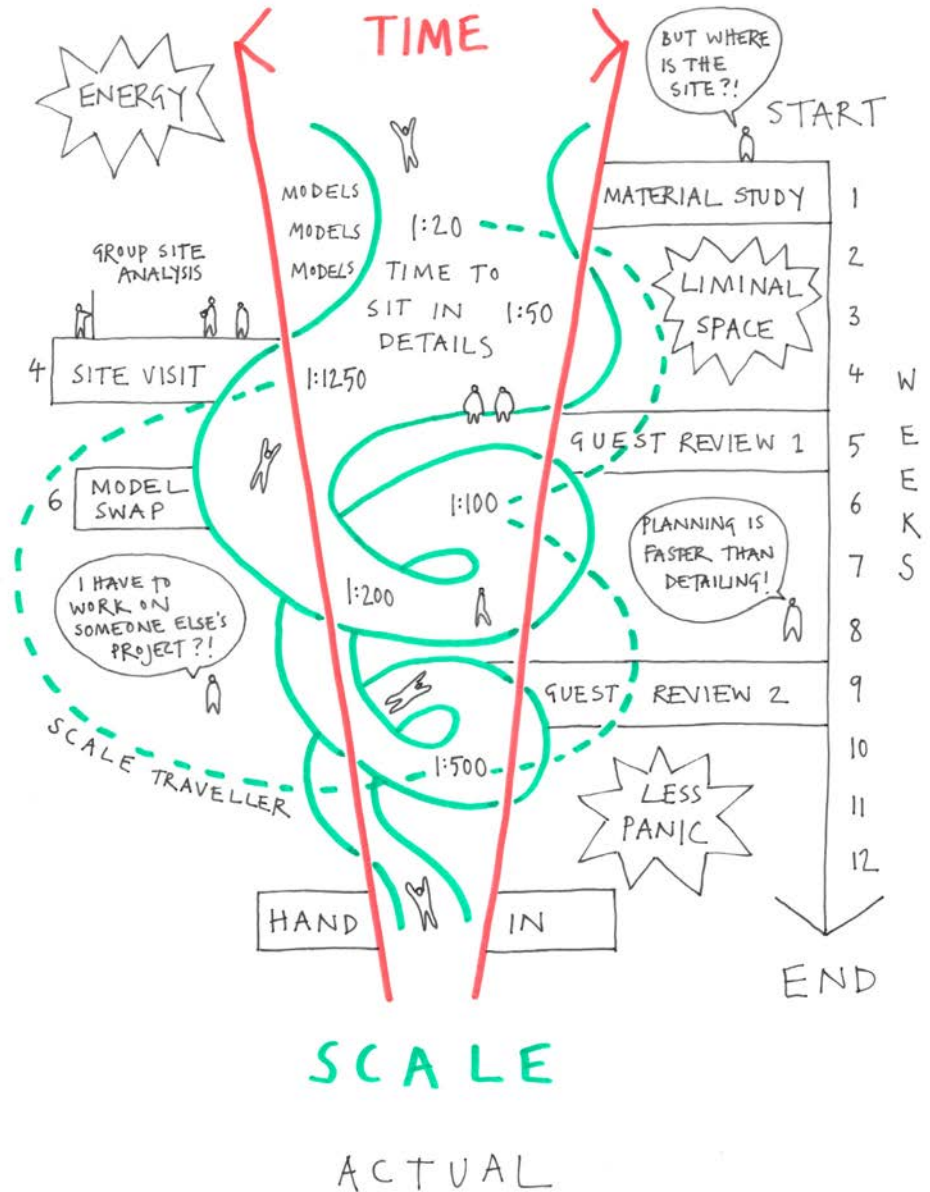 TIME
ENERGY
BUT WHERE
IS THE
SITE?!
START
MATERIAL STUDY
1
2
3
4
5
6
7
8
9
10
11
12
WEEKS
MODELS
MODELS
MODELS
1:20
TIME TO
SIT IN
DETAILS
1:50
LIMINAL
SPACE
GROUP SITE
ANALYSIS
4
SITE VISIT
1:1250
GUEST REVIEW 1
6
MODEL
SWAP
1:100
PLANNING IS
FASTER THAN
DETAILING!
I HAVE TO
WORK ON
SOMEONE ELSE'S
PROJECT?!
1:200
GUEST REVIEW 2
SCALE TRAVELLER
1:500
LESS
PANIC
HAND IN
END
SCALE
ACTUAL